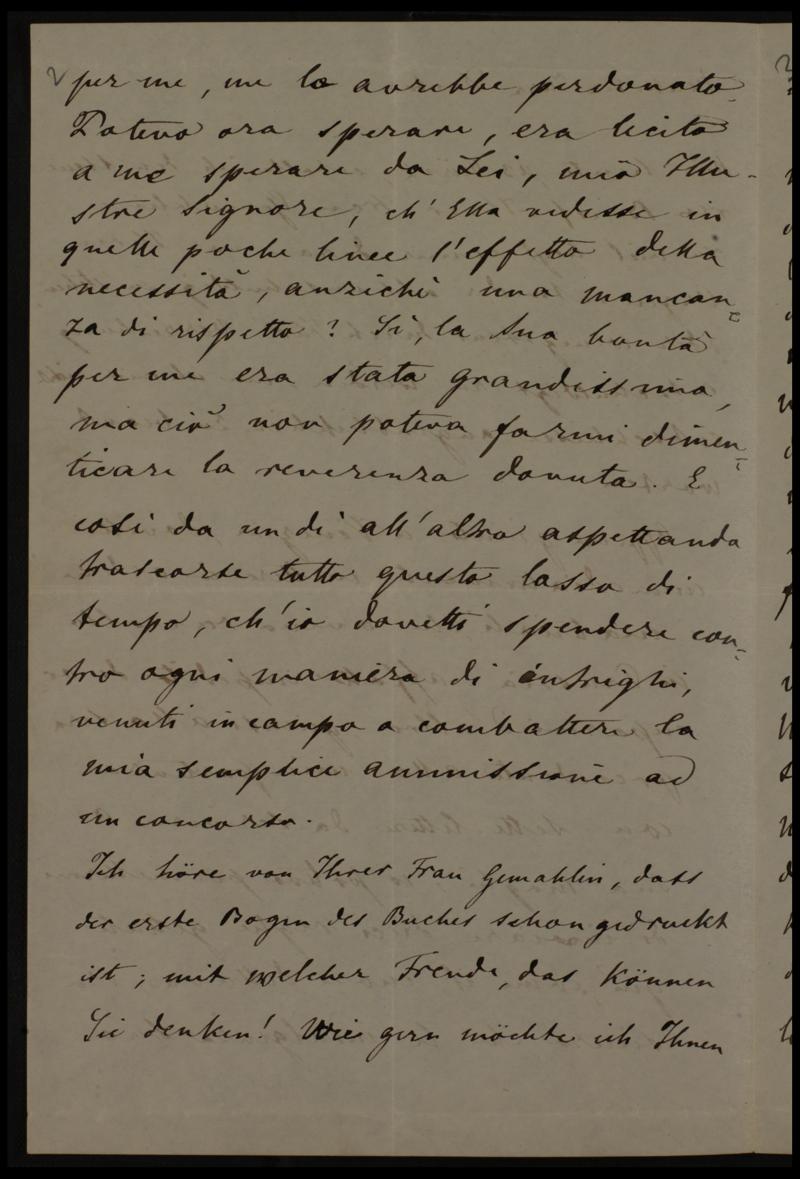 per me, me lo avrebbe perdonato.
Potevo ora sperare, era lecito
a me sperare da Lei, mio Illu-
stre Signore, ch'Ella vedesse in
quelle poche linee l'effetto della
necessità, anzichè una mancan-
za di rispetto? Sì, la Sua bontà
per me era stata grandissima,
ma ciò non poteva farmi dimen-
ticare la reverenza dovuta. E
così da un dì all'altro aspettando
trascorse tutto questo lasso di
tempo, ch'io dovetti spendere con-
tro ogni maniera di intrighi,
venuti in campo a combattere la
mia semplice ammissione ad
un concorso.
Ich höre von Ihrer Frau Gemahlin, dass
der erste Bogen des Buches schon gedruckt
ist; mit welcher Freude, das können
Sie denken! Wie gern möchte ich Ihnen